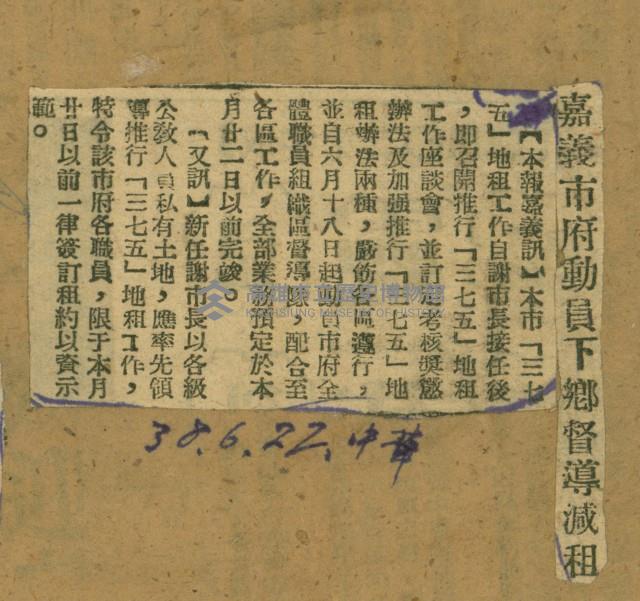 嘉義市府動員下鄉督導減租
【本報嘉義訊】本市「三七
五」地租工作自謝市長接任後
，即召開推行「三七五」地租
工作座談會，並訂 考核奬懲
辦法及加强推行「 七五」地
租辦法兩種，嚴飭各區遵行，
並自六月十八日起動員市府全
體職員組織區督導隊，配合至
各區工作，全部業務預定於本
月廿二日以前完竣。
【又訊】新任謝市長以各級
公敎人員私有土地，應率先領
導推行「三七五」地租工作，
特令該市府各職員，限于本月
廿日以前一律簽訂租約以資示
範。
高雄市立歷史博物館
KAOHSIUNG MUSEUM OF HISTORY
38.6.22.中華